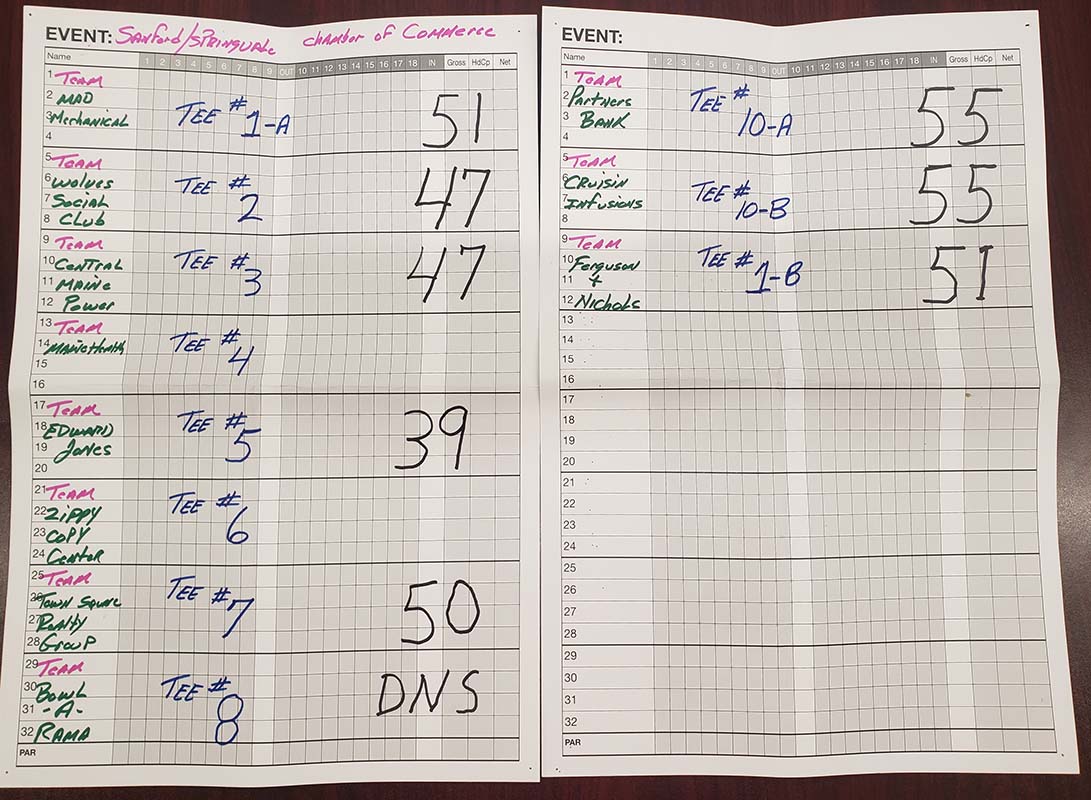 EVENT: Sanford/Springvale Chamber of Commerce
Name 1 2 3 4 5 6 7 8 9 OUT 10 11 12 13 14 15 16 17 18 IN Gross HdCp Net
1 Team
2 MAD
3 Mechanical
4
TEE # 1-A
51
5 Team
6 Wolves
7 Social
8 Club
TEE # 2
47
9 Team
10 Central
11 Maine
12 Power
TEE # 3
47
13 Team
14 MaineHealth
15
16
TEE # 4
17 Team
18 Edward
19 Jones
20
TEE # 5
39
21 Team
22 Zippy
23 Copy
24 Center
TEE # 6
25 Team
26 Town Square
27 Realty
28 Group
TEE # 7
50
29 Team
30 Bowl
31 -A-
32 Rama
TEE # 8
DNS
PAR
EVENT:
Name 1 2 3 4 5 6 7 8 9 OUT 10 11 12 13 14 15 16 17 18 IN Gross HdCp Net
1 Team
2 Partners
3 Bank
4
TEE # 10-A
55
5 Team
6 Cruisin
7 Infusions
8
TEE # 10-B
55
9 Team
10 Ferguson
11 +
12 Nichols
TEE # 1-B
51
13
14
15
16
17
18
19
20
21
22
23
24
25
26
27
28
29
30
31
32
PAR